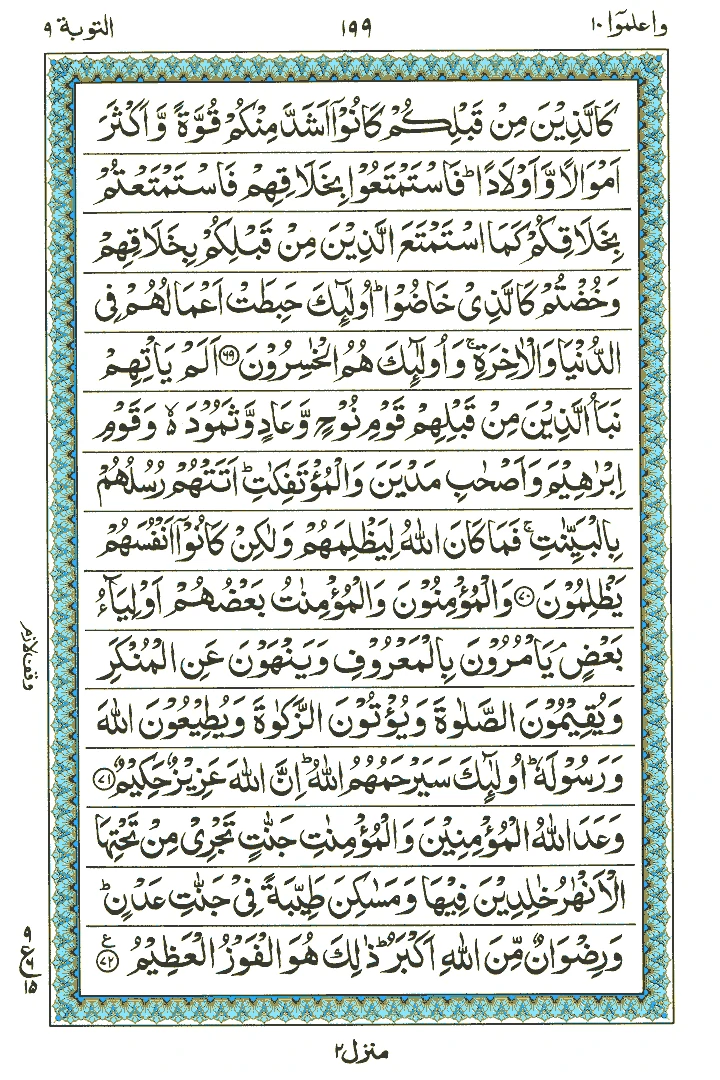 واعلموٓا ١٠
١٩٩
التوبة ٩
كَالَّذِيْنَ مِنْ قَبْلِكُمْ كَانُوْٓا اَشَدَّ مِنْكُمْ قُوَّةً وَّ اَكْثَرَ
اَمْوَالًا وَّ اَوْلَادًا ؕ فَاسْتَمْتَعُوْا بِخَلَاقِهِمْ فَاسْتَمْتَعْتُمْ
بِخَلَاقِكُمْ كَمَا اسْتَمْتَعَ الَّذِيْنَ مِنْ قَبْلِكُمْ بِخَلَاقِهِمْ
وَ خُضْتُمْ كَالَّذِيْ خَاضُوْا ؕ اُولٰٓئِكَ حَبِطَتْ اَعْمَالُهُمْ فِي
الدُّنْيَا وَ الْاٰخِرَةِ ۚ وَ اُولٰٓئِكَ هُمُ الْخٰسِرُوْنَ ٦٩ اَلَمْ يَاْتِهِمْ
نَبَاُ الَّذِيْنَ مِنْ قَبْلِهِمْ قَوْمِ نُوْحٍ وَّ عَادٍ وَّ ثَمُوْدَ ۙ۬ وَ قَوْمِ
اِبْرٰهِيْمَ وَ اَصْحٰبِ مَدْيَنَ وَ الْمُؤْتَفِكٰتِ ؕ اَتَتْهُمْ رُسُلُهُمْ
بِالْبَيِّنٰتِ ۚ فَمَا كَانَ اللّٰهُ لِيَظْلِمَهُمْ وَ لٰكِنْ كَانُوْٓا اَنْفُسَهُمْ
يَظْلِمُوْنَ ٧٠ وَ الْمُؤْمِنُوْنَ وَ الْمُؤْمِنٰتُ بَعْضُهُمْ اَوْلِيَآءُ
بَعْضٍ ۘ يَاْمُرُوْنَ بِالْمَعْرُوْفِ وَ يَنْهَوْنَ عَنِ الْمُنْكَرِ
وَ يُقِيْمُوْنَ الصَّلٰوةَ وَ يُؤْتُوْنَ الزَّكٰوةَ وَ يُطِيْعُوْنَ اللّٰهَ
وَ رَسُوْلَهٗ ؕ اُولٰٓئِكَ سَيَرْحَمُهُمُ اللّٰهُ ؕ اِنَّ اللّٰهَ عَزِيْزٌ حَكِيْمٌ ٧١
وَعَدَ اللّٰهُ الْمُؤْمِنِيْنَ وَ الْمُؤْمِنٰتِ جَنّٰتٍ تَجْرِيْ مِنْ تَحْتِهَا
الْاَنْهٰرُ خٰلِدِيْنَ فِيْهَا وَ مَسٰكِنَ طَيِّبَةً فِيْ جَنّٰتِ عَدْنٍ ؕ
وَ رِضْوَانٌ مِّنَ اللّٰهِ اَكْبَرُ ؕ ذٰلِكَ هُوَ الْفَوْزُ الْعَظِيْمُ ٧٢ ع
وقف لازم
٩
ع ٦
١٥
منزل ٢